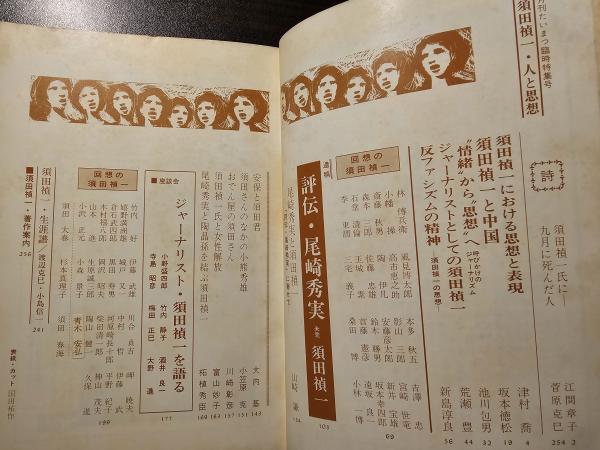 月刊たいまつ臨時特集号
須田禎一・人と思想
詩
須田禎一氏に
江間章子 2
九月に死んだ人
菅原克巳 254
須田禎一における思想と表現
津村 喬 4
須田禎一と中国
坂本徳松 19
“情緒”から“思想”へ
池川包男 32
ジャーナリストとしての須田禎一
荒瀬 豊 44
反ファシズムの精神
須田禎一の思想
新島淳良 56
回想の須田禎一
林 傳兵衛
風見博太郎
本多 秋五
吉澤 忠
小幡 操
高市恵之助
影山 三郎
宮崎 世竜
斎藤 秋男
安藤彦太郎
森本 三郎
佐藤 忠雄
石堂 清倫
李 東湖
玉城 素
三宅 義子
桑田 博
小林 一博
69
遺稿
評伝・尾崎秀実
未完
須田禎一
105
尾崎秀実と須田禎一
山崎 謙
134
安保と須田君
大内 基 143
須田さんのなかの小熊秀雄
小笠原 克 151
おでん屋の須田さん
川崎 彰彦 157
須田禎一氏と女性解放
富山 妙子 159
尾崎秀実と陶晶孫を結ぶ須田禎一
柘植 秀臣 163
■座談会
ジャーナリスト・須田禎一を語る
小野盛四郎
竹内 静子
酒井 良一
寺島 昭彦
梅田 正巳
大野 進
177
回想の須田禎一
竹内 好
伊藤 武雄
川合 貞吉
岬 暁夫
嬉野 満洲雄
城戸 又一
中村 哲
伊藤 武
平野 紀子
木村禧八郎
岡沢 昭夫
柴田清一郎
神山 茂夫
山本 進
生原誠三郎
陽山 健
久保 進
小沢 正元
小森 景子
青木 安弘
須田 大春
杉本真理子
須田 春海
199
須田禎一・生涯譜
渡辺克巳・小島信一
241
■須田禎一・著作案内
256
表紙・カット